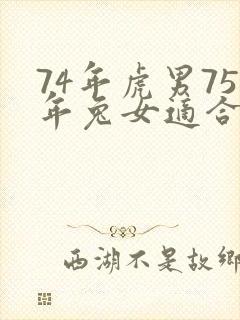 74年虎男75
年兔女適合
西湖不是故鄉